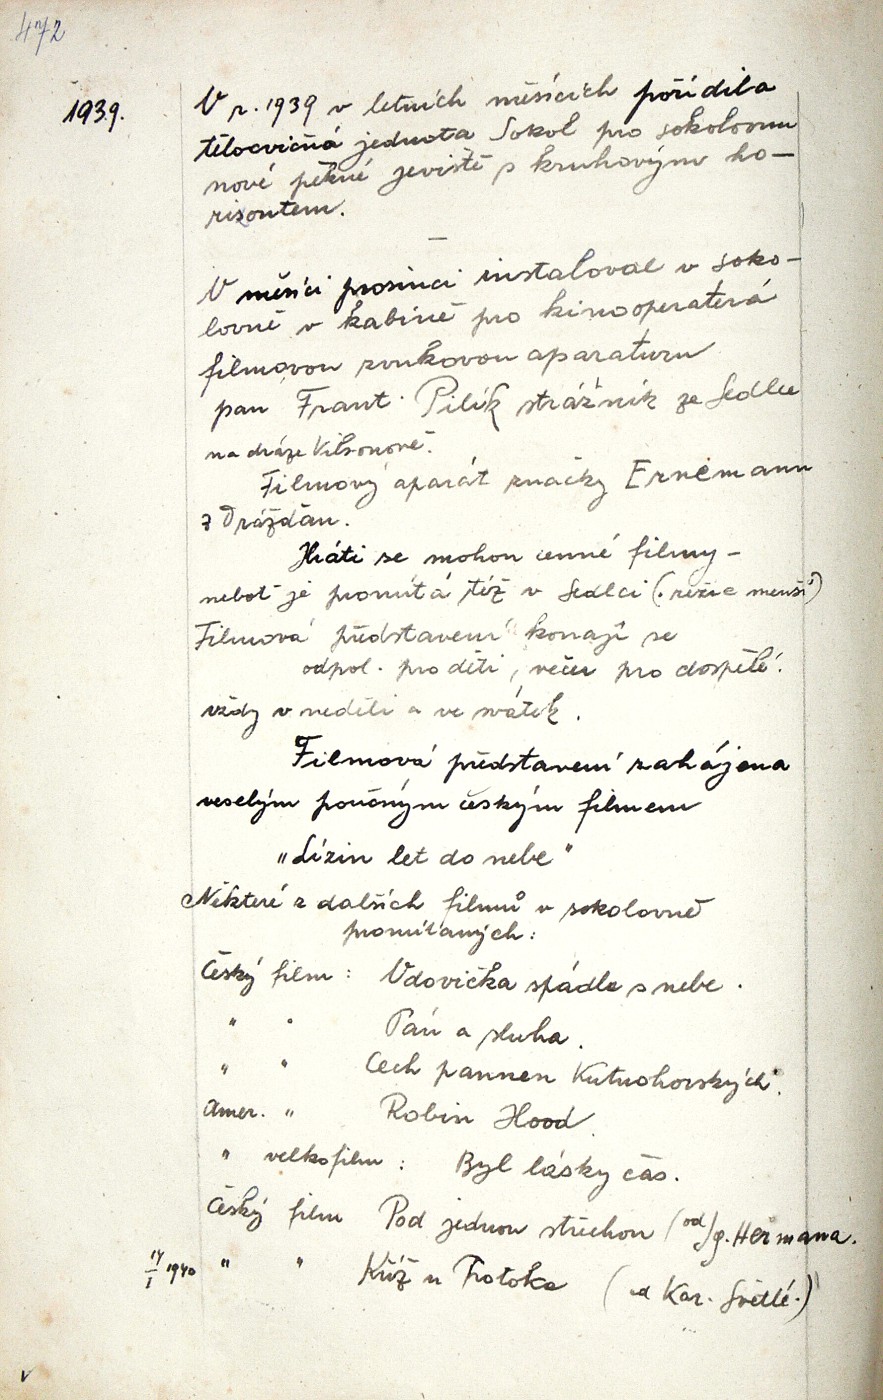 472
1939.
V r. 1939 v letních měsících pořídila
tělocvičná jednota Sokol pro sokolovnu
nové pěkné jeviště s kruhovým ho-
rizontem.
V měsíci prosinci instaloval v soko-
lovně v kabině pro kinooperatéra
filmovou zvukovou aparaturu
pan Frant. Pilík strážník ze Sedlce
na dráze Vilsonově.
Filmový aparát značky Ernemann
z Drážďan.
Hráti se mohou cenné filmy -
neboť je promítá též v Sedlci (. režie menší)
Filmová představení konají se
odpol. pro děti, večer pro dospělé.
vždy v neděli a ve svátek.
Filmová představení zahájena
veselým poučným českým filmem
„Lízin let do nebe"
Některé z dalších filmů v sokolovně
promítaných:
Český film : Vdovička spádla s nebe.
" " Pán a sluha.
" " Cech pannen Kutnohorských.
Amer. " Robin Hood.
" velkofilm : Byl lásky čas.
Český film Pod jednou střechou (od Ig. Hermana.
14/I 1940 " " Kříž u Potoka (od Kar. Světlé.)
v